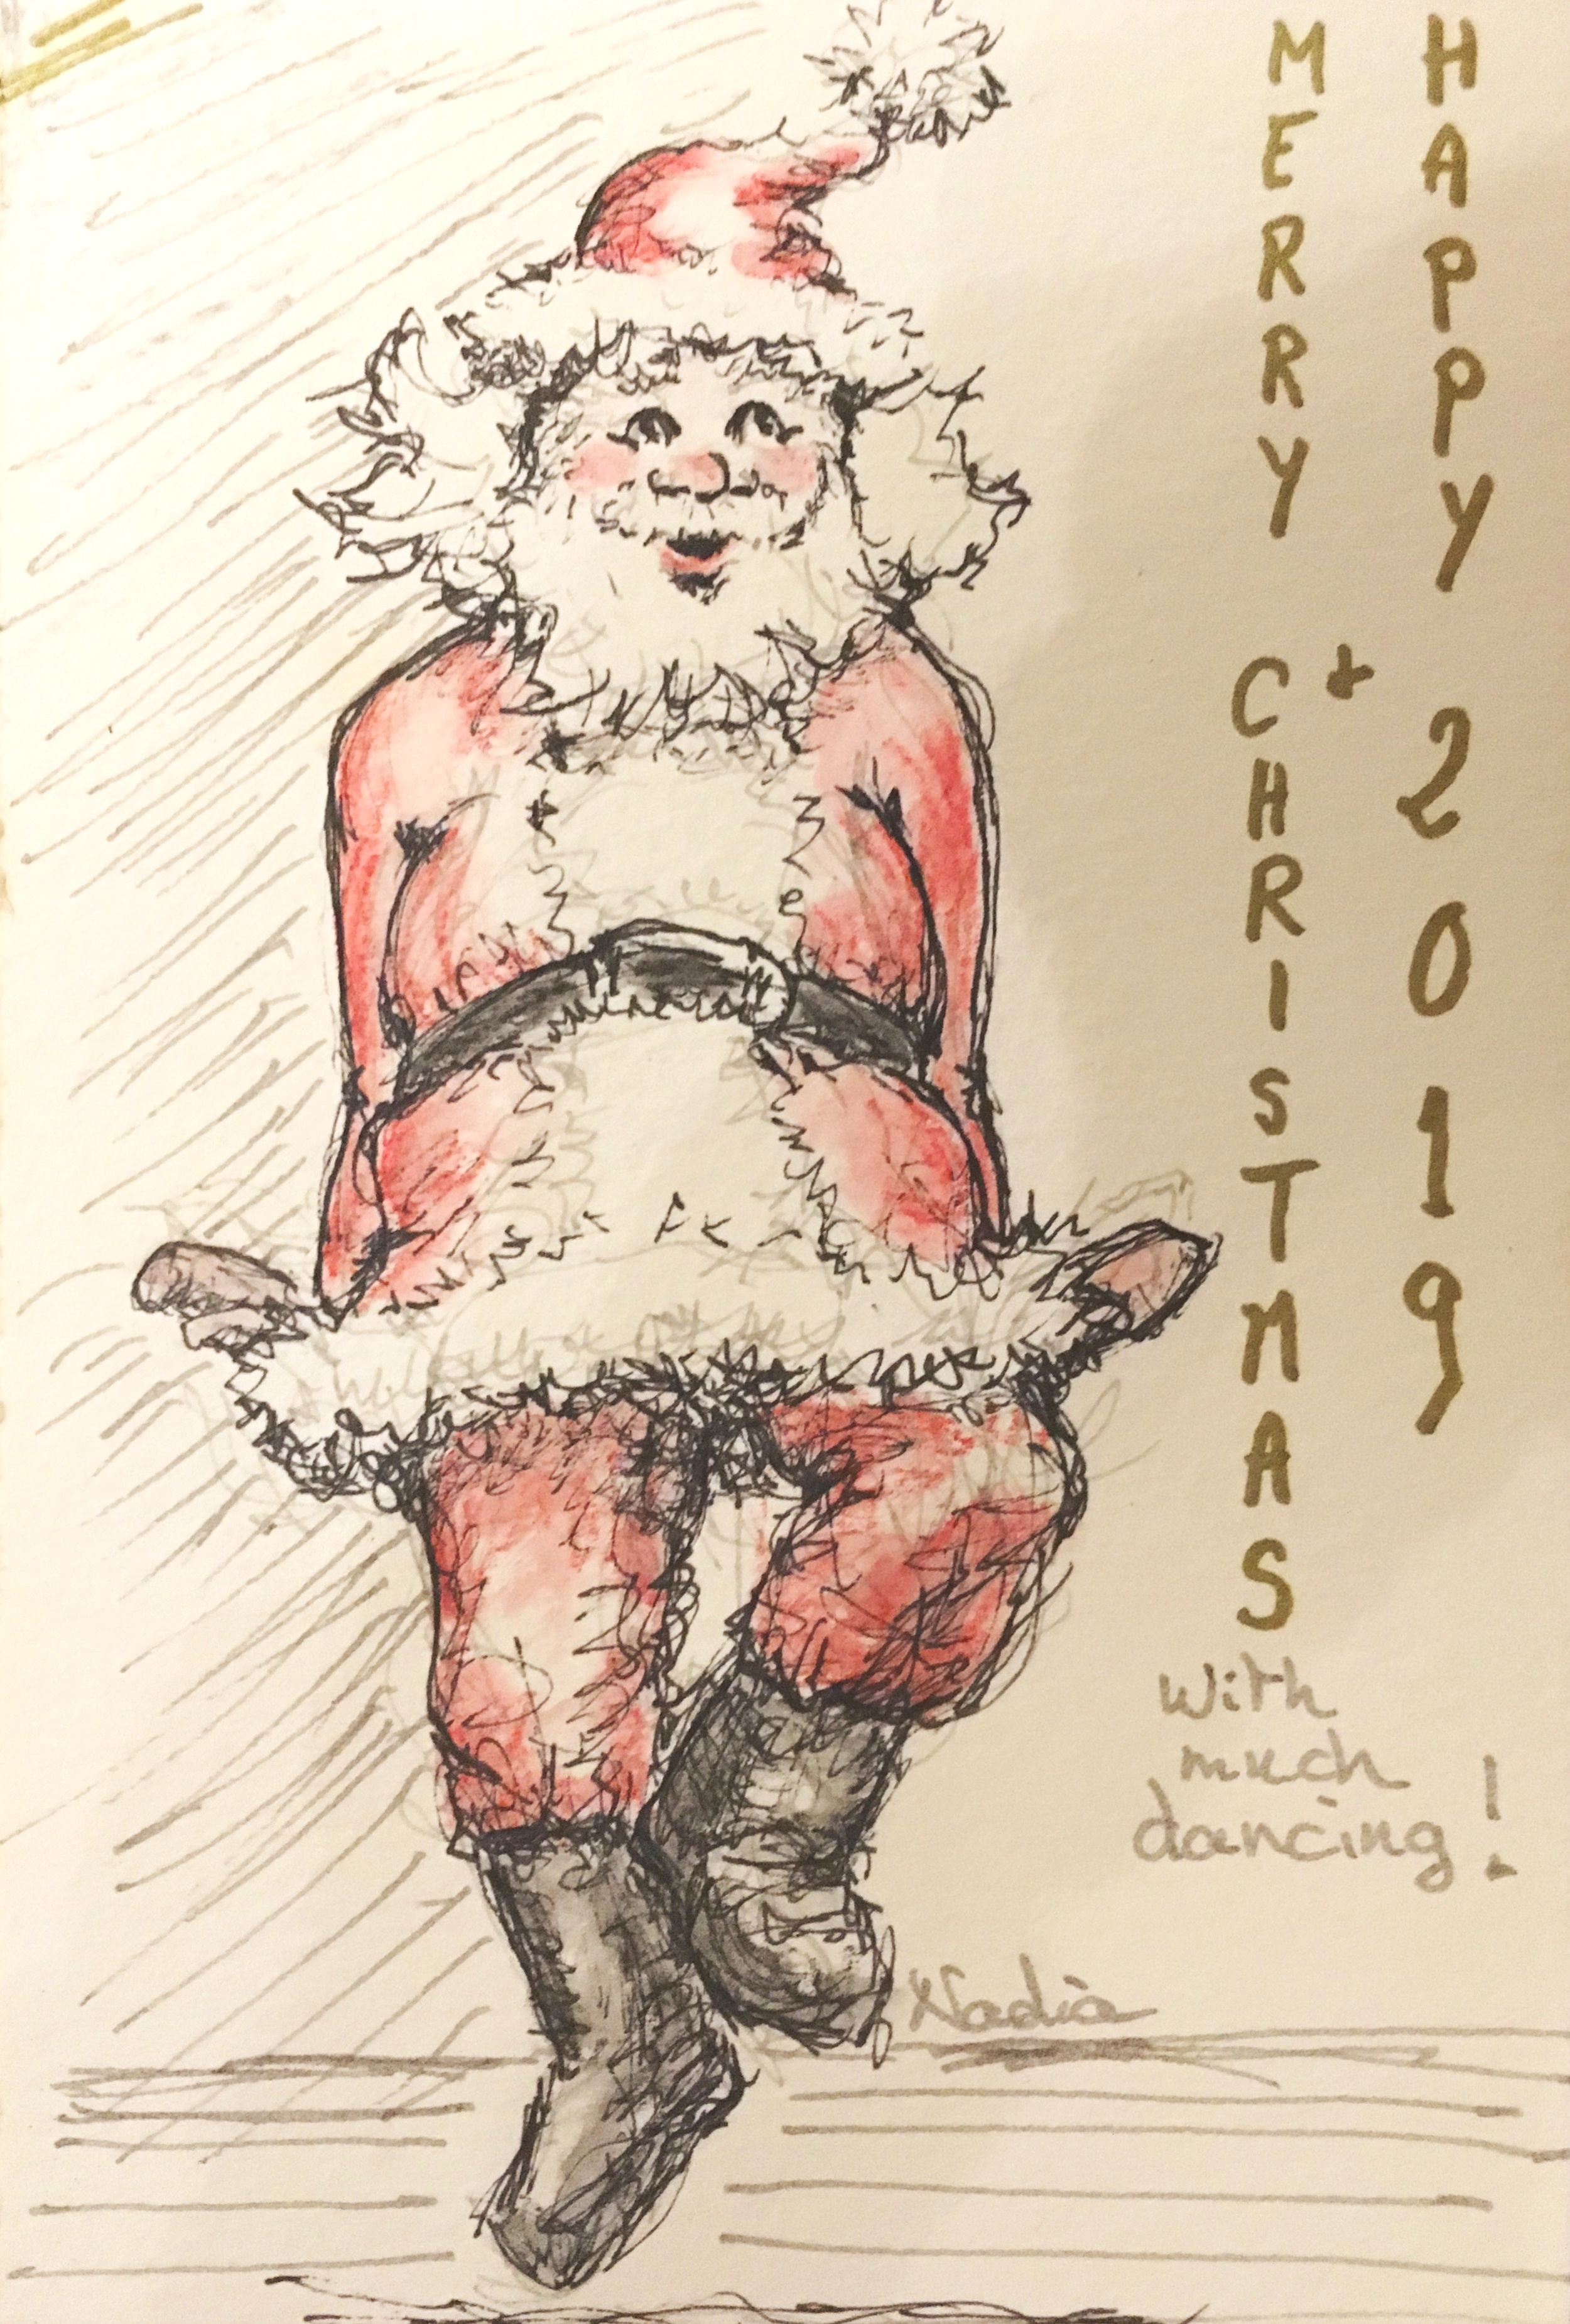 MERRY CHRISTMAS
&
HAPPY 2019
with
much
dancing!
Nadia